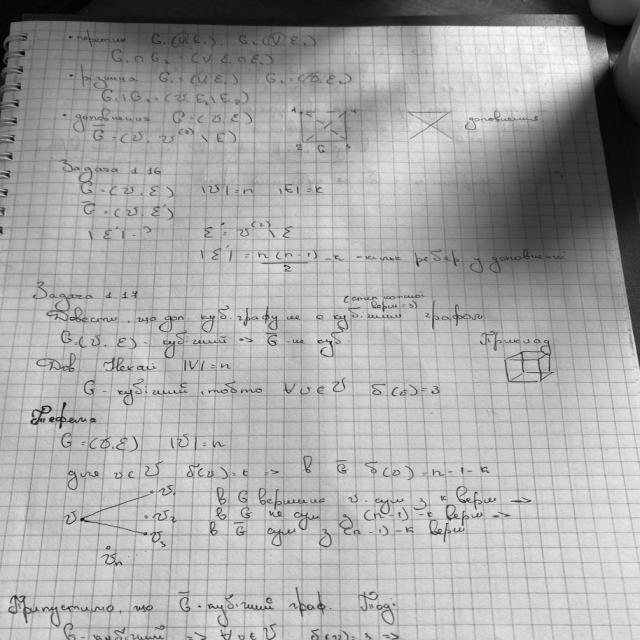 • перетин G₁(V,E₁) G₂(V,E₂)
G₁∩G₂=(V,E₁∩E₂)
• різниця G₁=(V,E₁) G₂=(V,E₂)
G₁\G₂=(V,E₁\E₂)
• доповнення G=(V,E) доповнення
G̅=(V, V⁽²⁾\E)
2 G 3
Задача 1.16
G=(V,E) |V|=n |E|=k
G̅=(V,E')
|E'|-? E'=V⁽²⁾\E
|E'|=n(n-1)/2-k -кільк ребер у доповненні
Задача 1.17
(степ кожної верш=3)
Довести, що доп. куб. графу не є кубічним графом
G=(V,E)-кубічний => G̅-не куб
Приклад
Дов Нехай |V|=n
G-кубічний, тобто ∀v∈V δ(v)=3
Теорема
G=(V,E) |V|=n
для v∈V δ(v)=k => в G̅ δ(v)=n-1-k
v v₁ v₂ v₃ vₙ
в G вершина v-сум з k верш =>
в G не сум з (n-1)-k верш =>
в G̅ сум з (n-1)-k верш
Припустимо, що G̅-кубічний граф. Тоді:
G-кубічний => ∀v∈V δ(v)=3 =>